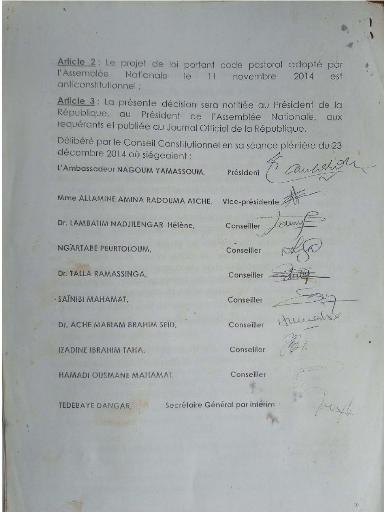 Article 2 : Le projet de loi portant code pastoral adopté par
l'Assemblée Nationale le 11 novembre 2014 est
anticonstitutionnel ;
Article 3 : La présente décision sera notifiée au Président de la
République, au Président de l'Assemblée Nationale, aux
requérants et publiée au Journal Officiel de la République.
Délibéré par le Conseil Constitutionnel en sa séance plénière du 23
décembre 2014 où siégeaient :
L'Ambassadeur NAGOUM YAMASSOUM, Président
Mme ALLAMINE AMINA RADOUMA AICHE, Vice-présidente
Dr. LAMBATIM NADJILENGAR Hélène, Conseiller
NGARTABE PEURTOLOUM, Conseiller
Dr. TALLA RAMASSINGA, Conseiller
SAÏNIBI MAHAMAT, Conseiller
Dr. ACHE MARIAM BRAHIM SEID, Conseiller
IZADINE IBRAHIM TAHA, Conseiller
HAMADI OUSMANE MAHAMAT, Conseiller
TEDEBAYE DANGAR, Secrétaire Général par intérim